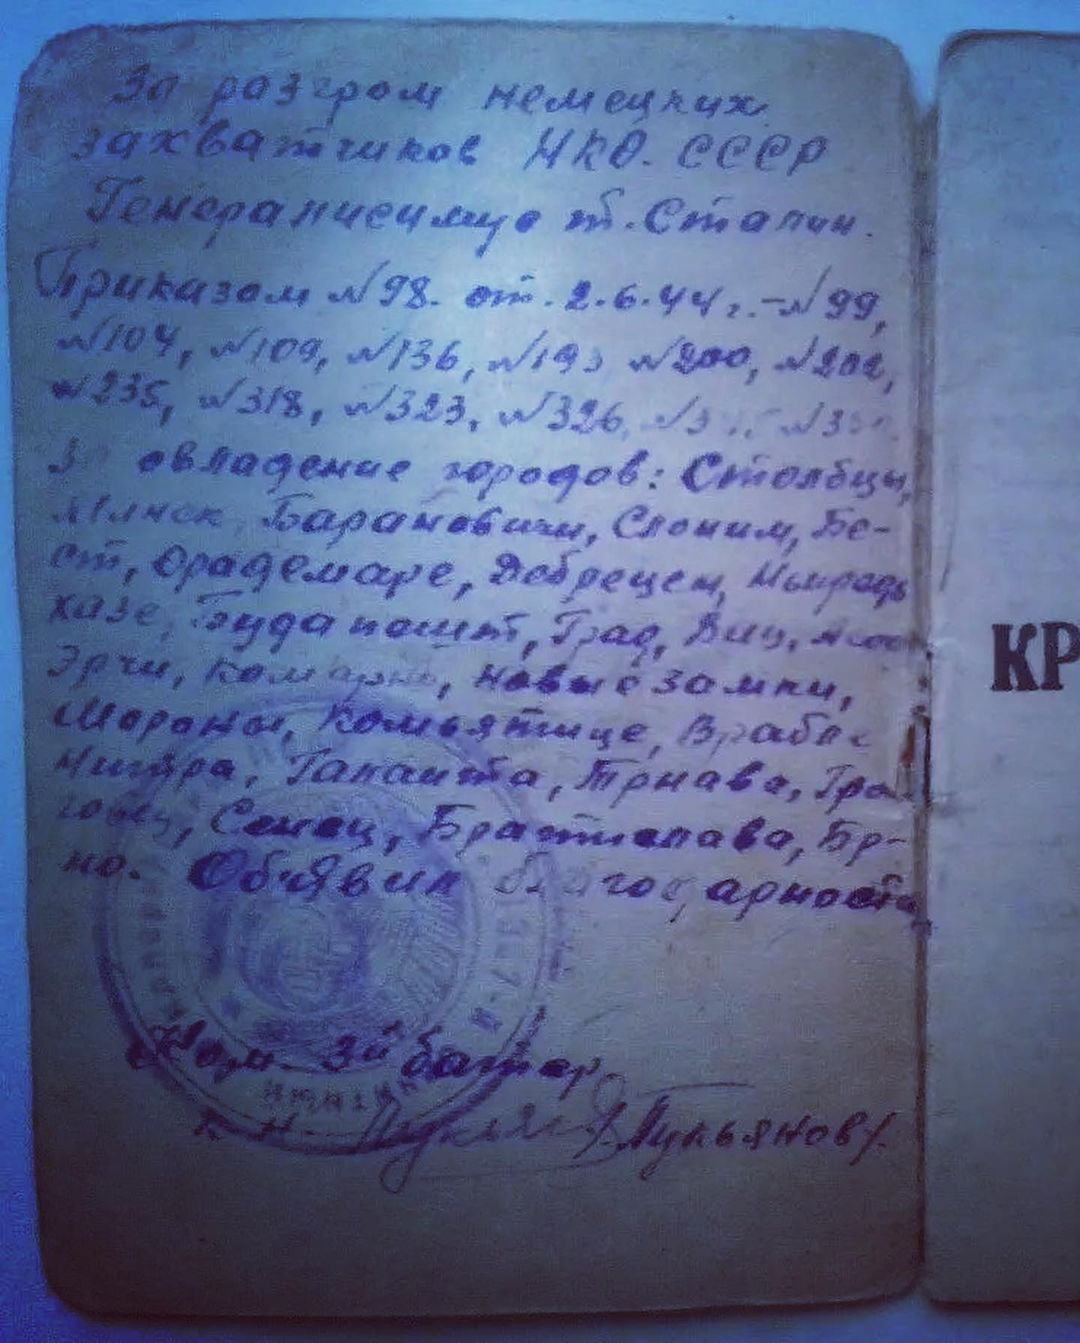 За разгром немецких
захватчиков НКО. СССР
Генералисимус т. Сталин.
Приказом №98. от. 2.6.44 г. - №99,
№104, №109, №136, №19 №200, №202,
№235, №318, №323, №326, №3 №3
За овладение городов: Столбцы,
Минск, Барановичи, Слоним, Бе-
ст, Орадемаре, Дебрецен,
хазе, Будапешт, Град, Виц,
Эрчи, Комарно, новые замки,
Шораны, Комьятице, Врабле
Галанта, Трнава,
Сенец, Братислава, Бр-
но. Обчявил благодарности
Ком 3й батар.
к н. /Лукьянов/.
КР